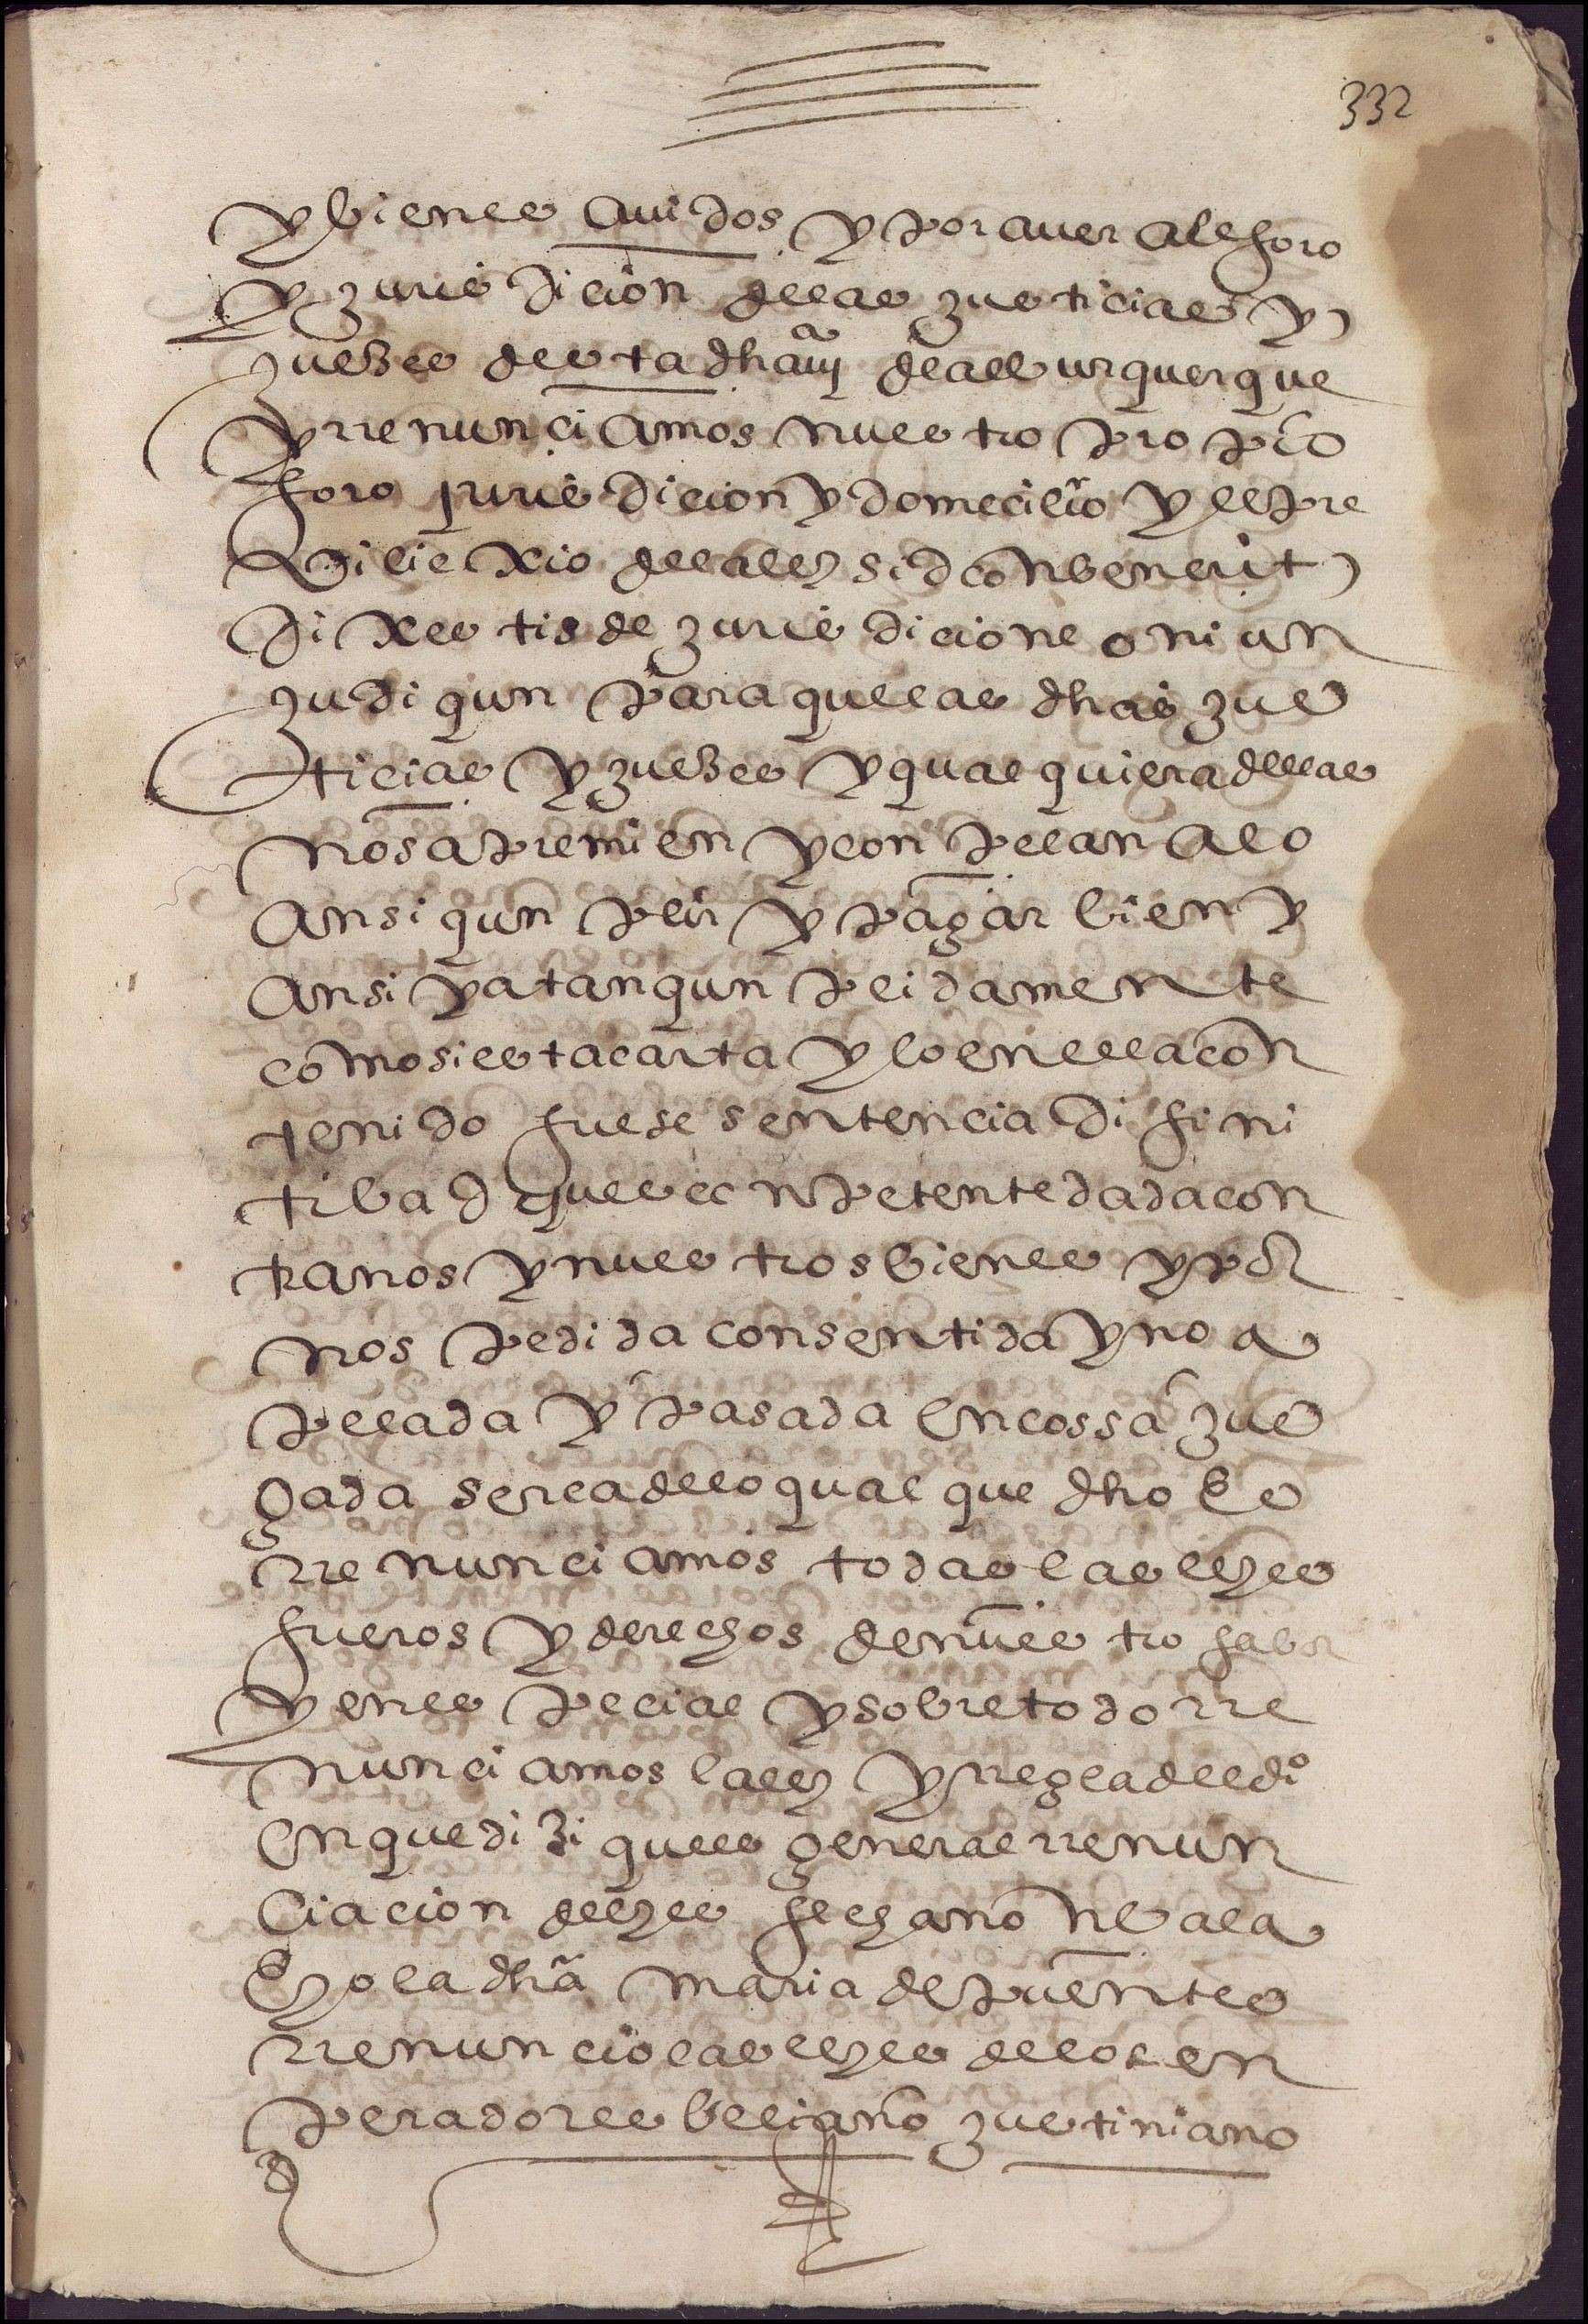 332
y bienes avidos y por aver al foro
y zurisdicion de las zusticias y
zuezes desta dha uiª de alburquerque
y rrenunciamos nuestro propio
foro jurisdicion y domecilio y el pre
vilexio de la ley sid conbenerit
dixestis de zurisdicione oniun
zudiqun para que las dhas zus
ticias y zuezes y qualquiera dellas
nos apremien y conpelan a lo
ansi qunplir y pagar bien y
ansi y a tan qunplidamente
como si esta carta y lo en ella con
tenido fuese sentencia difini
tiba d zues conpetente dada con
tra nos y nuestros bienes y por
nos pedida consentida y no a
pelada y pasada en cossa zus
gada serca de lo qual que dho es
rrenunciamos todas las leyes
fueros y derechos de nuestro fabor
y en especial y sobre todo rre
nunciamos la ley y rregla del dro
en que dizi que es general rrenun
ciacion de leyes fecha no n bala
E yo la dha maria de puentes
rrenuncio las leyes de los en
peradores beliano zustiniano